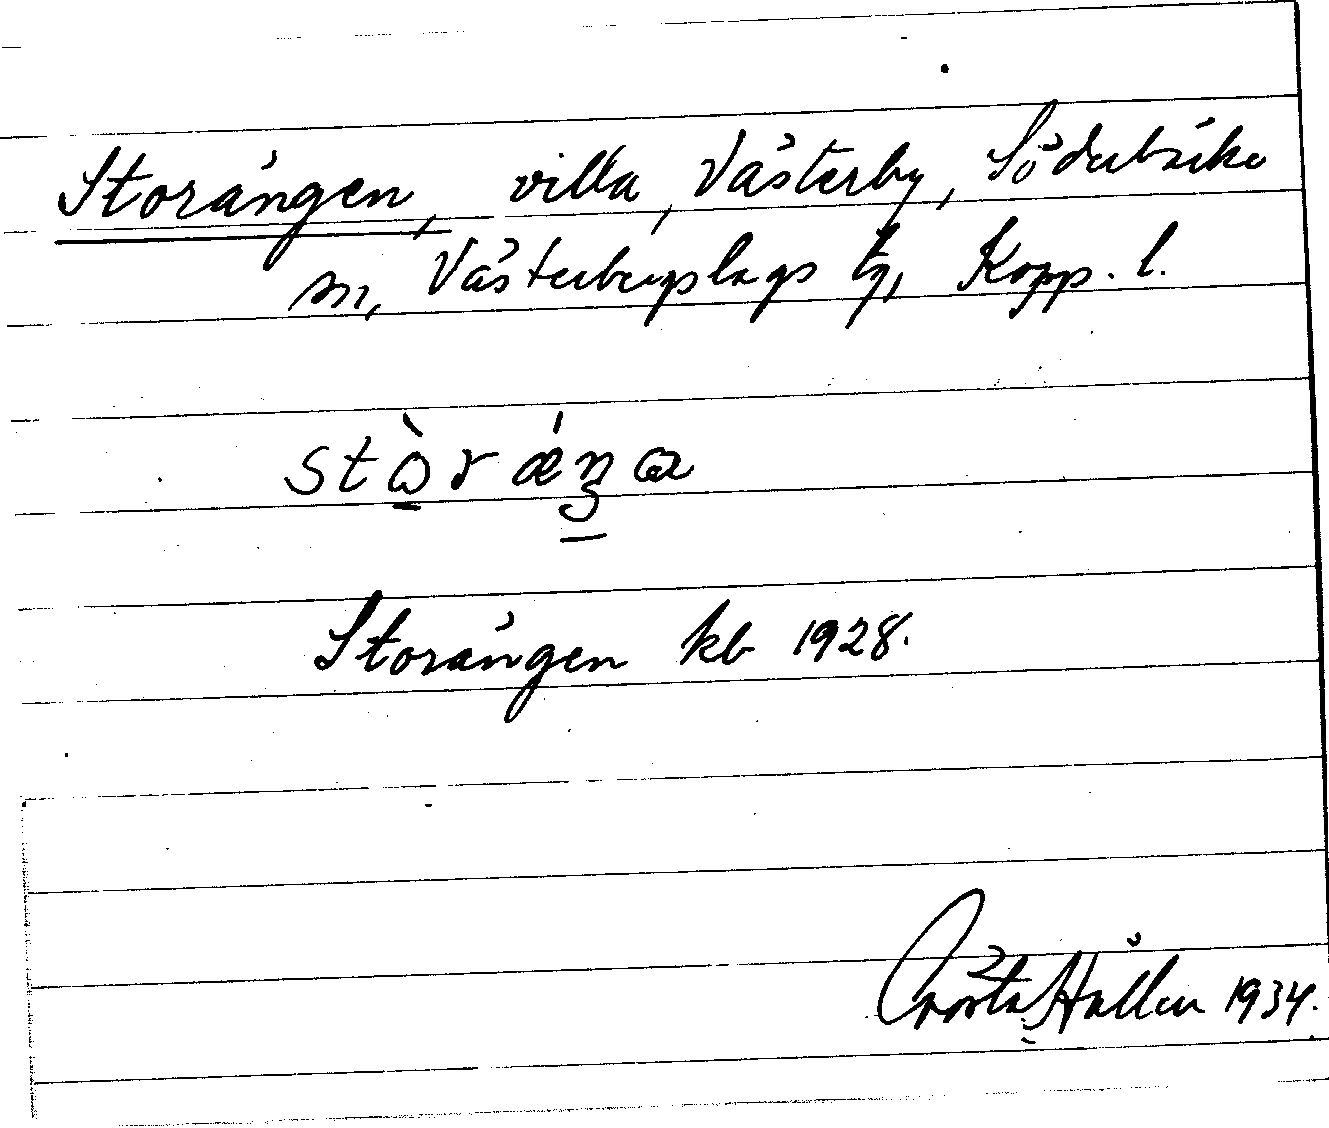 Storängen, villa, Västerby, Söderbärke
sn, Västerbergslags tg, Kopp. l.
stɷ̀rǽŋa
Storängen kb 1928.
Gösta Hallén 1934.